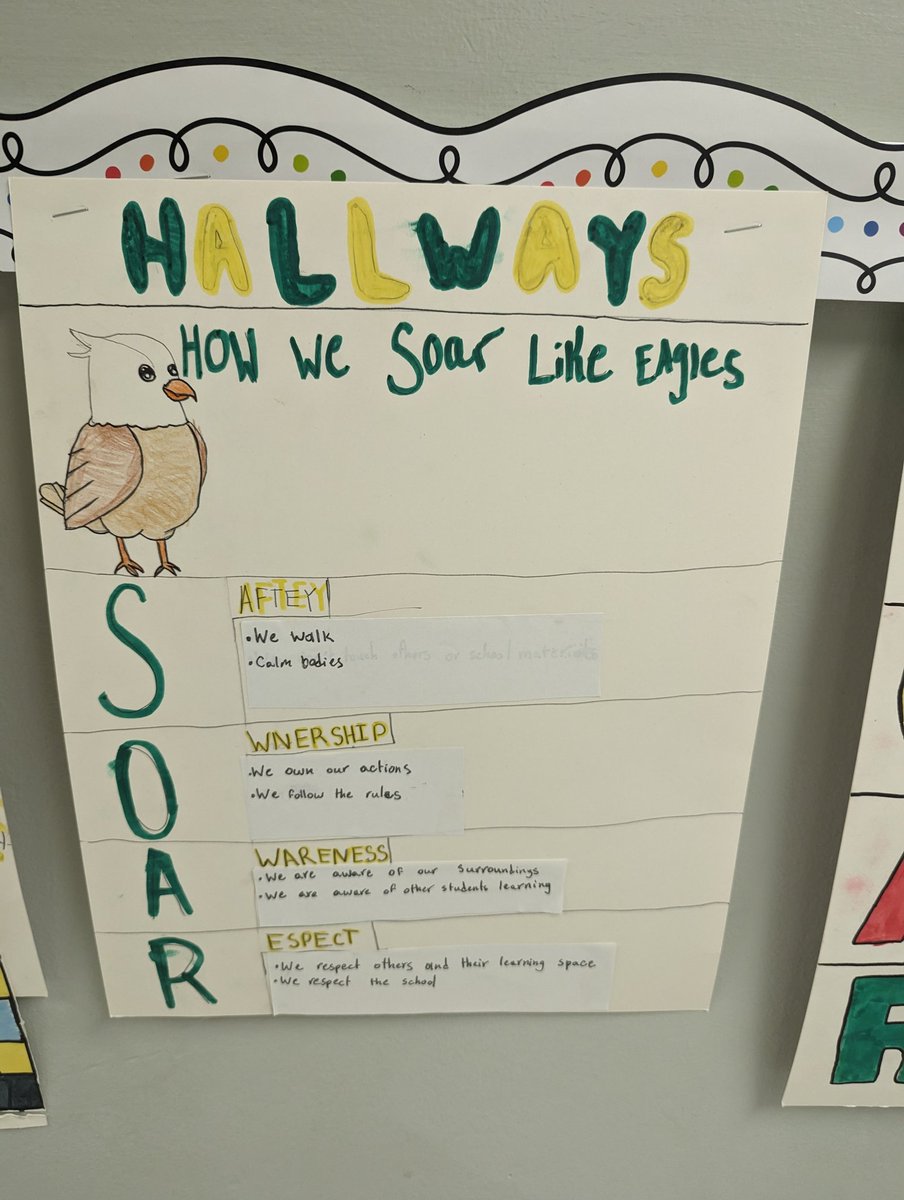 HALLWAYS
HOW We Soar Like EAgles
S
AFTEY
•We walk
touch others or school materials
•Calm bodies
O
WNERSHIP
•We own our actions
•We follow the rules
A
WARENESS
•We are aware of our surroundings
•We are aware of other students learning
R
ESPECT
•We respect others and their learning space
•We respect the school
R